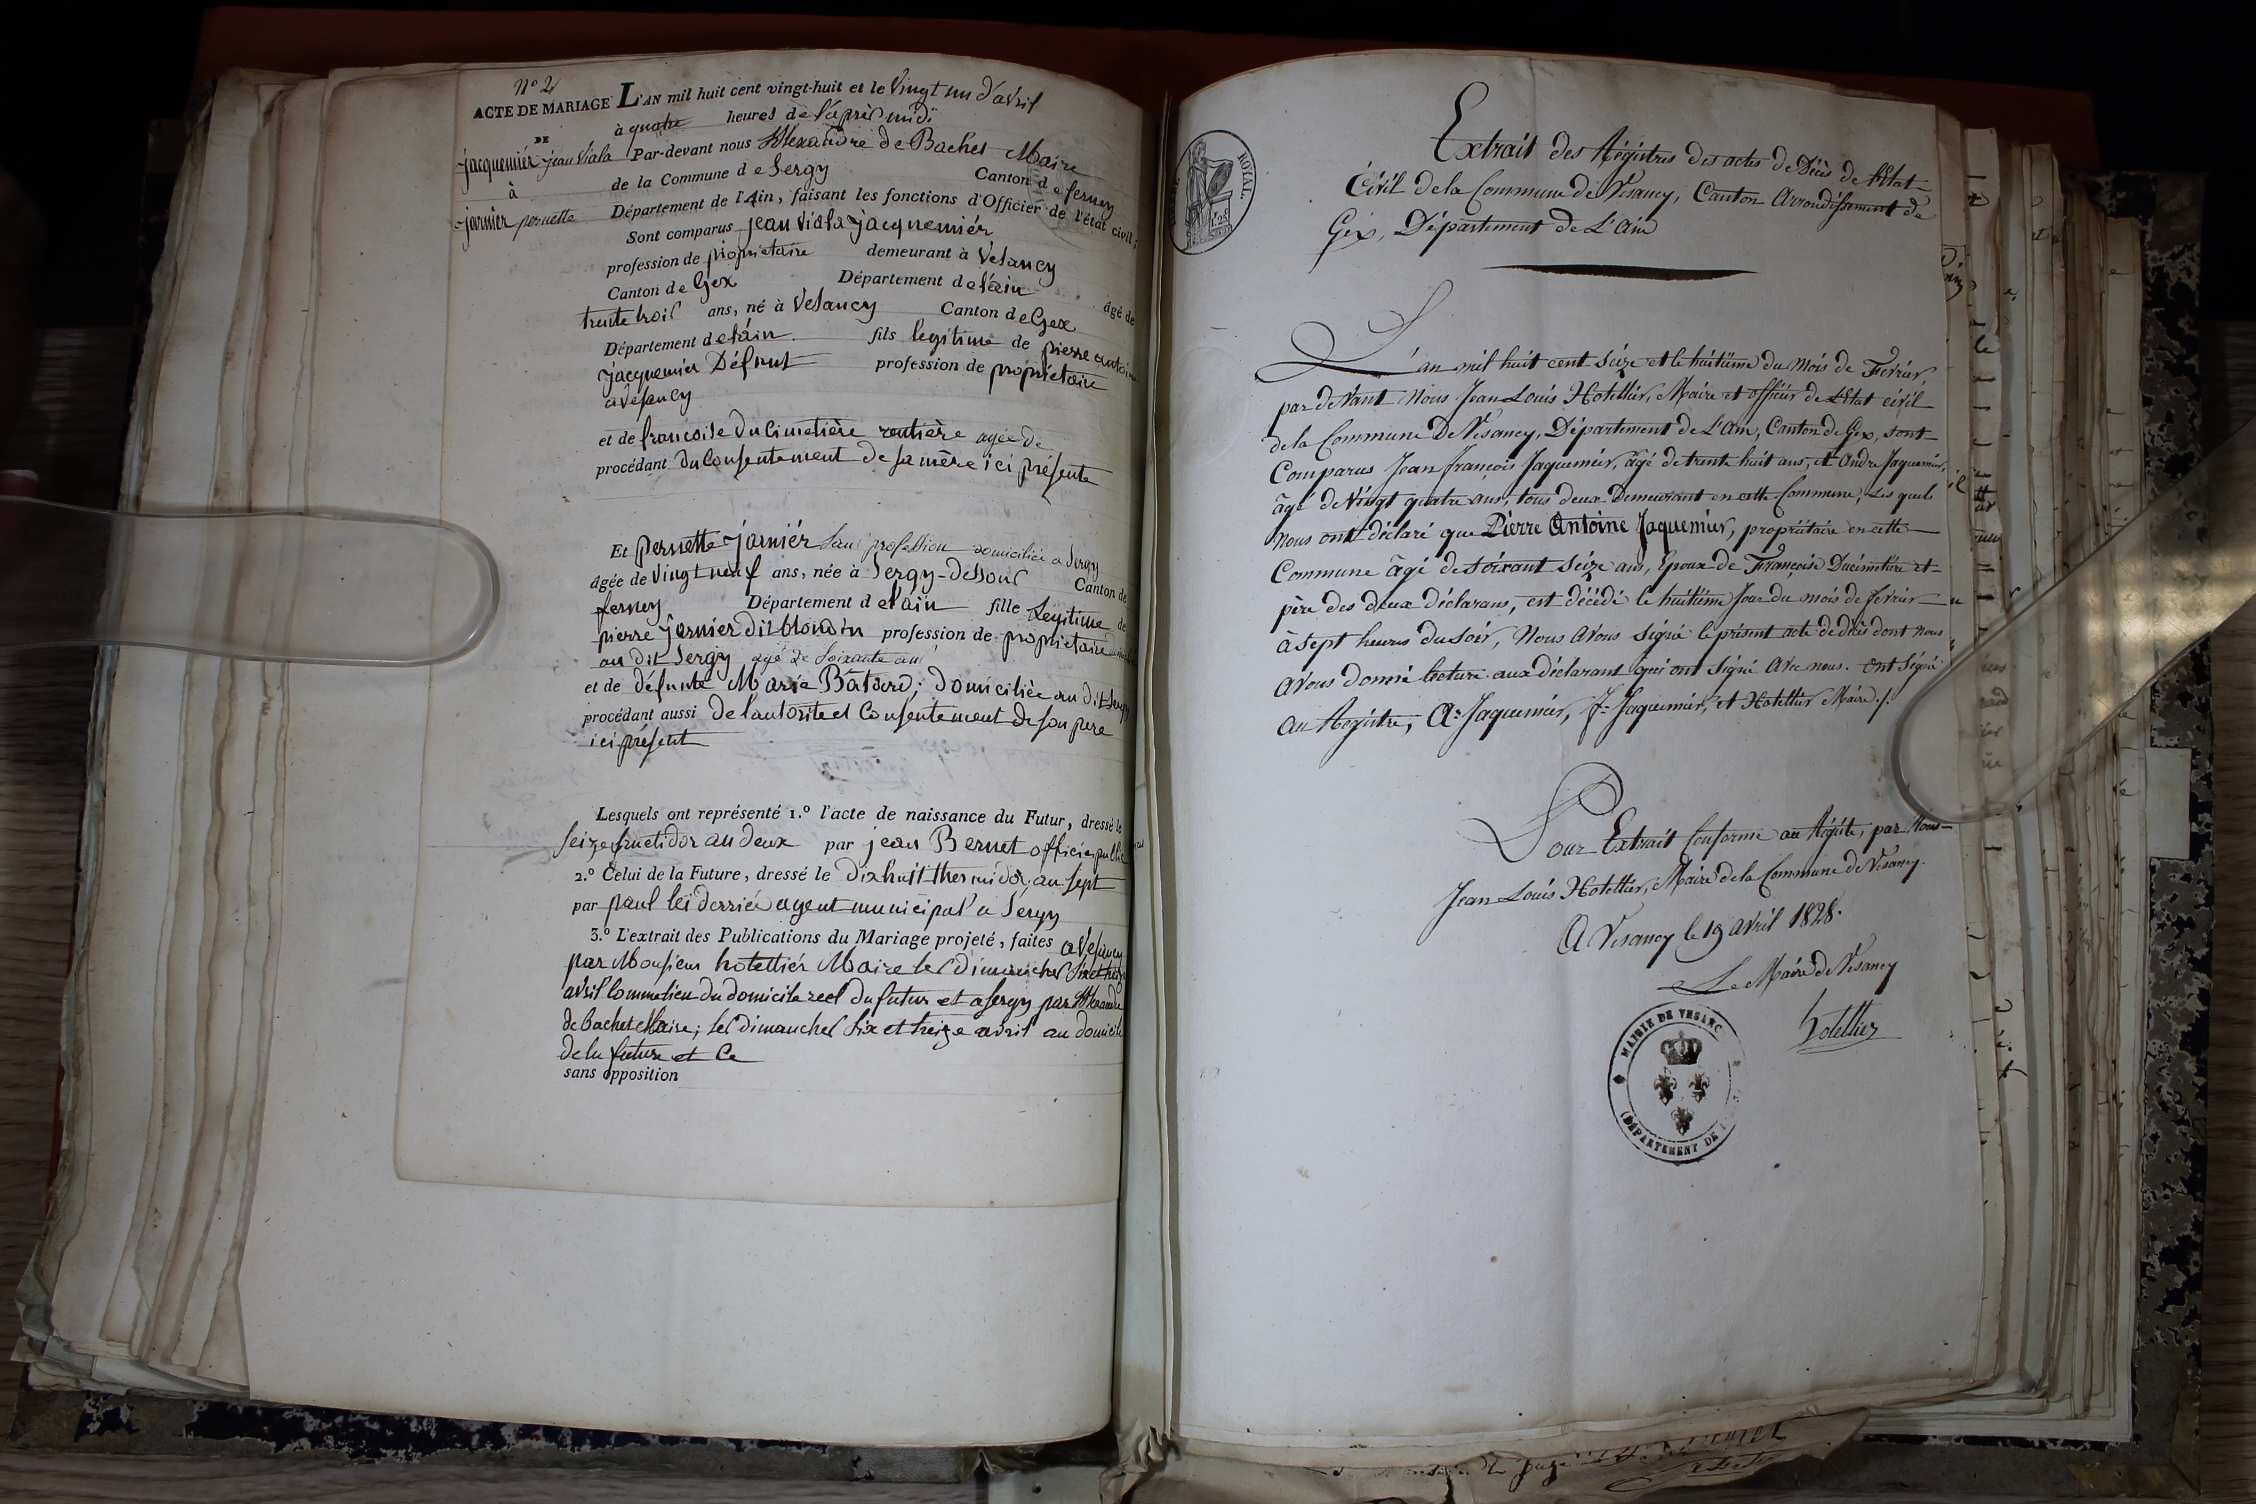 N° 2
ACTE DE MARIAGE
DE
jacquemiér jean Viala
à
jarniér pernette
L'AN mil huit cent vingt-huit et le Vingt un d'avril
à quatre heures de l'après midi
Par-devant nous Alexandre de Bachet Maire
de la Commune de Sergy Canton de ferney
Département de l'Ain, faisant les fonctions d'Officier de l'état civil;
Sont comparus jean Viala jacquemiér
profession de propriétaire demeurant à Vesancy
Canton de Gex Département de l'ain âgé de
trente trois ans, né à Vesancy Canton de Gex
Département de l'ain fils legitime de pierre antoine
jacquemier Défunt profession de propriétaire
a vesancy
et de francoise Ducimetière rentière agée de
procédant du Consentement de sa mère ici présente
Et pernette jarniér sans profession domiciliée a Sergy
âgée de vingt neuf ans, née à Sergy-dessous Canton de
ferney Département de l'ain fille Legitime de
pierre jarnier dit blondin profession de propriétaire
au dit Sergy agé de Soixante ans
et de défunte Marie Batard; domiciliée au dit Sergy
procédant aussi de l'autorité et Consentement de son pere
ici présent
Lesquels ont représenté 1.º l'acte de naissance du Futur, dressé le
seize fructidor an deux par jean Bernet officier public
2.º Celui de la Future, dressé le dix huit thermidor, an sept
par paul agent municipal a Sergy
3.º L'extrait des Publications du Mariage projeté, faites a Vesancy
par Monsieur hotelliér Maire les dimanches six et treize
avril Comme lieu du domicile reel du futur et a Sergy par Alexandre
de bachet Maire; les dimanches six et treize avril au domicile
de la future et Ce
sans opposition
ROYAL
Extrait des Régistres des actes de Décès de l'Etat
Civil de la Commune de Vésancy, Canton Arrondissement de
Gex, Département de L'Ain
L'an mil huit cent seize et le huitième du mois de Fevrier,
par devant Nous Jean Louis Hotellier, Maire et officier de l'Etat civil
de la Commune De Vésancy, Département de L'Ain, Canton de Gex, sont
Comparus Jean françois Jaquemier, âgé de trente huit ans, et André Jaquemier,
âgé de Vingt quatre ans, tous deux Demeurant en cette Commune, Les quels
nous ont déclaré que Pierre Antoine Jaquemier, propriétaire en cette
Commune âgé de soixant seize ans, Epoux de Françoise Ducimetière et
père des deux déclarans, est décédé le huitième Jour du mois de fevrier
à sept heures du soir, Nous avons signé le présent acte de décès dont nous
avons donné lecture aux déclarant qui ont signé avec nous. Ont Signé
au Registre, A: Jaquemier, J: Jaquemier, et Hotellier Maire ./.
Pour Extrait Conforme au Régiste, par Nous
Jean Louis Hotellier, Maire de la Commune de Vésancy.
A Vesancy le 19 avril 1828.
Le Maire de Vesancy
hotellier
MAIRIE DE VESANC
DÉPARTEMENT DE